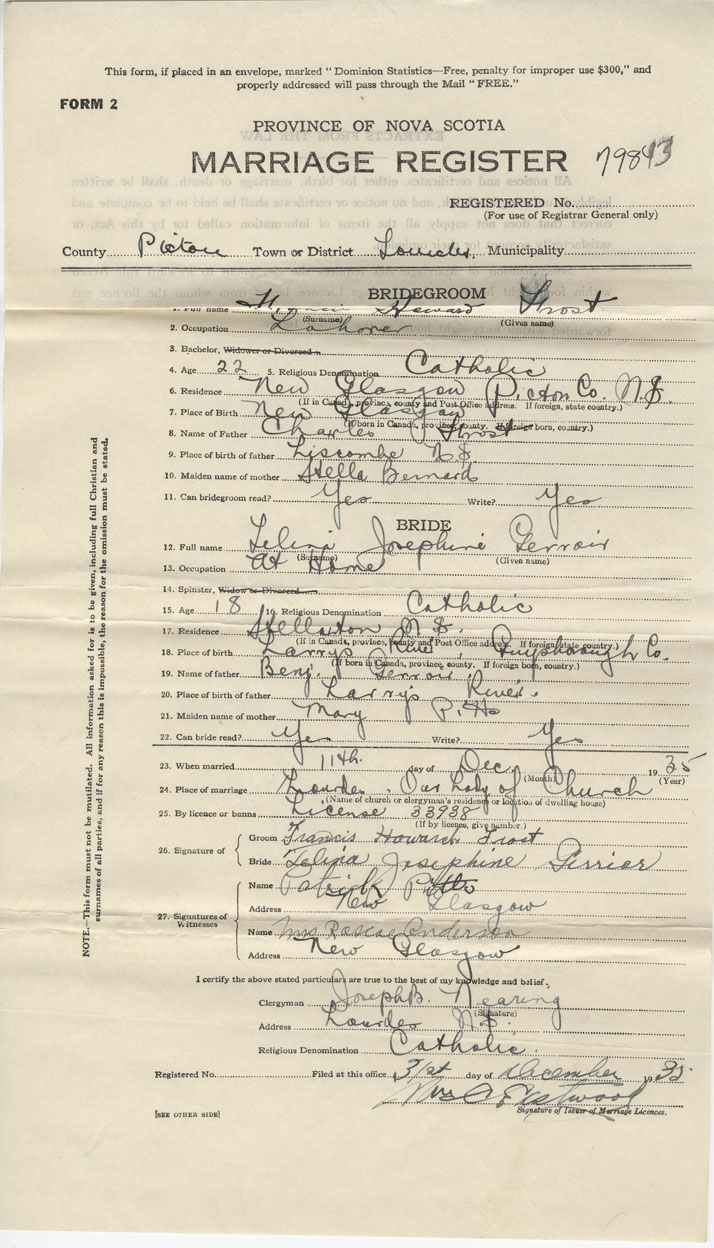 This form, if placed in an envelope, marked "Dominion Statistics—Free, penalty for improper use $300," and
properly addressed will pass through the Mail "FREE."
FORM 2
PROVINCE OF NOVA SCOTIA
MARRIAGE REGISTER 79843
REGISTERED No.
(For use of Registrar General only)
County Pictou Town or District Lourdes Municipality
BRIDEGROOM
1. Full name Francis Howard Frost
(Surname) (Given name)
2. Occupation Labourer
3. Bachelor, Widower or Divorced
4. Age 22 5. Religious Denomination Catholic
6. Residence New Glasgow Pictou Co. N.S.
(If in Canada, province, county and Post Office address. If foreign, state country.)
7. Place of Birth New Glasgow
(If born in Canada, province, county. If foreign born, country.)
8. Name of Father Charles Frost
9. Place of birth of father Liscombe N.S.
10. Maiden name of mother Stella Bernard
11. Can bridegroom read? Yes Write? Yes
BRIDE
12. Full name Zelina Josephine Gerroir
(Surname) (Given name)
13. Occupation At Home
14. Spinster, Widow or Divorced
15. Age 18 16. Religious Denomination Catholic
17. Residence Stellarton N.S.
(If in Canada, province, county and Post Office address. If foreign, state country.)
18. Place of birth Larrys River, Guysborough Co.
(If born in Canada, province, county. If foreign born, country.)
19. Name of father Benj. Gerroir
20. Place of birth of father Larrys River.
21. Maiden name of mother Mary
22. Can bride read? Yes Write? Yes
23. When married 11th. day of Dec. 1935
(Month) (Year)
24. Place of marriage Lourdes. Our Lady of Church
(Name of church or clergyman's residence or location of dwelling house)
25. By licence or banns License 33938
(If by licence, give number.)
26. Signature of
Groom Francis Howard Frost
Bride Zelina Josephine Gerrior
27. Signatures of Witnesses
Name Patrick
Address New Glasgow
Name Mrs Roscoe Anderson
Address New Glasgow
I certify the above stated particulars are true to the best of my knowledge and belief.
Clergyman Joseph B. Nearing
(Signature)
Address Lourdes N.S.
Religious Denomination Catholic.
Registered No. Filed at this office 31st day of December 1935
Mrs C Eastwood
[SEE OTHER SIDE] Signature of Issuer of Marriage Licences.
NOTE.—This form must not be mutilated. All information asked for is to be given, including full Christian and
surnames of all parties, and if for any reason this is impossible, the reason for the omission must be stated.